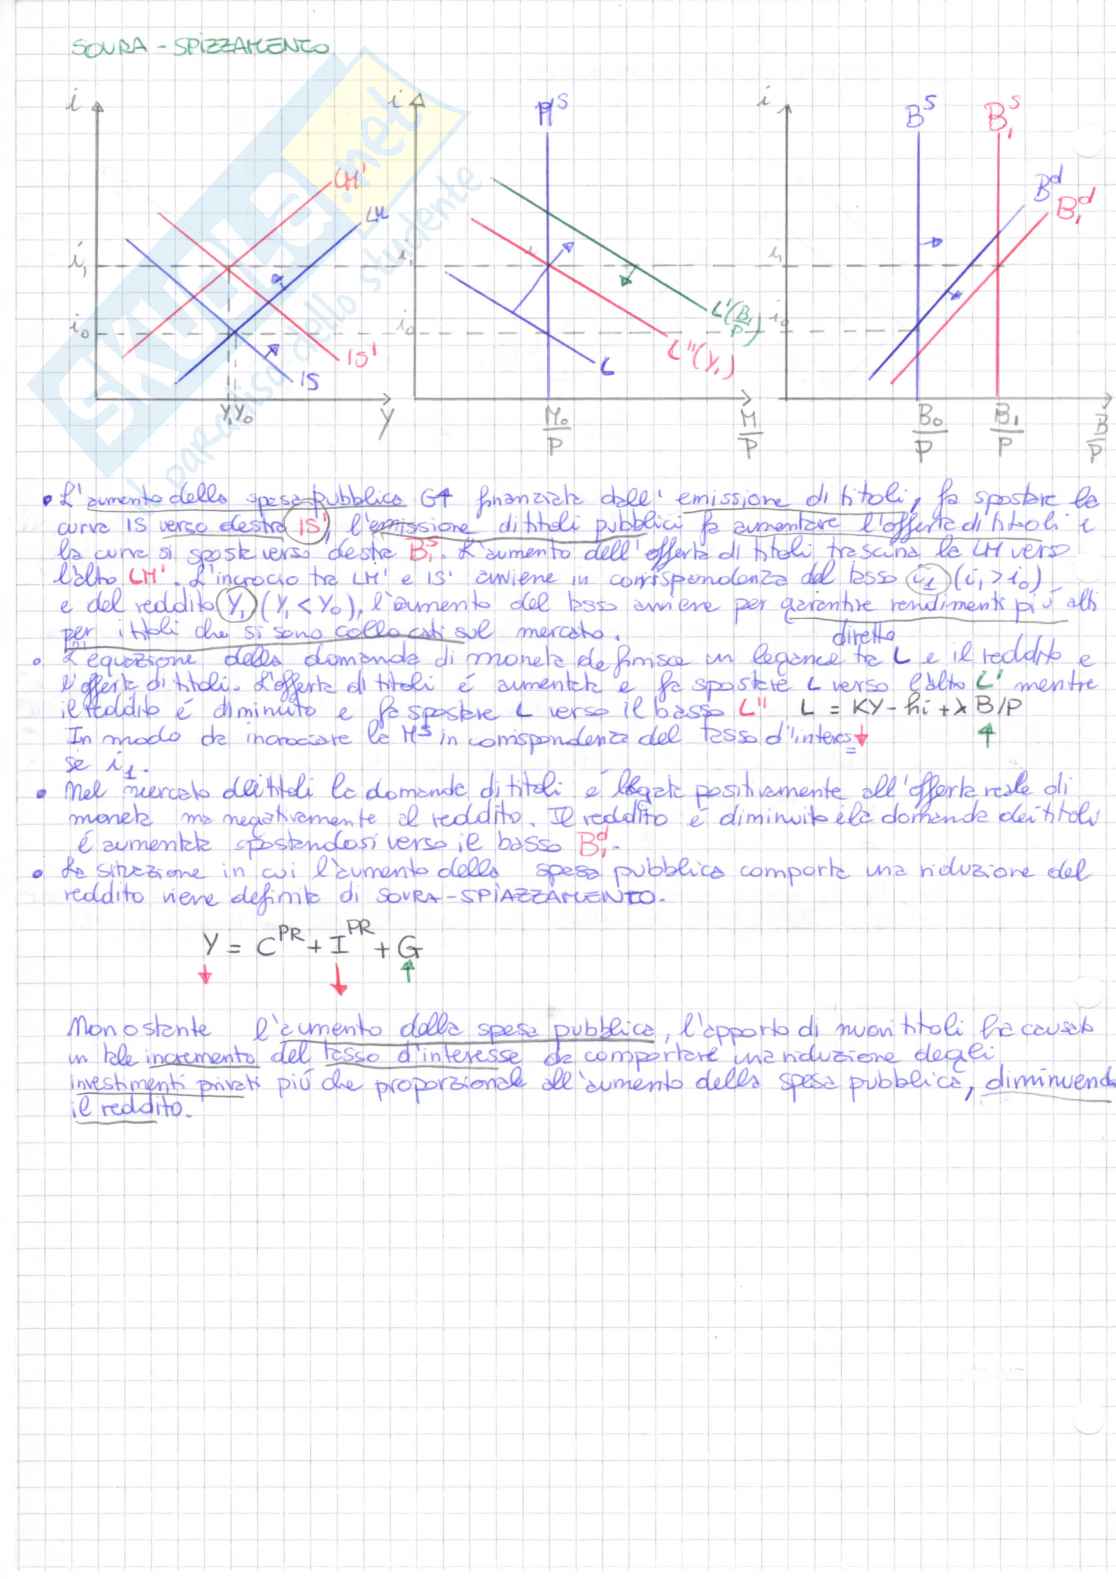 SOVRA-SPIZZAMENTO
i i i
M^S B^S B_1^S
LM' LM B^d B_1^d
i_1 i_1 i_1
i_0 i_0 i_0
L'(B_1/P)
IS' L L''(Y_1)
IS
Y_1 Y_0 Y M_0/P M/P B_0/P B_1/P B/P
• L'aumento della spesa pubblica G↑ finanziata dall'emissione di titoli, fa spostare la
curva IS verso destra IS', l'emissione di titoli pubblici fa aumentare l'offerta di titoli e
la curva si sposta verso destra B_1^S. L'aumento dell'offerta di titoli trascina la LM verso
l'alto LM'. L'incrocio tra LM' e IS' avviene in corrispondenza del tasso i_1 (i_1>i_0)
e del reddito Y_1 (Y_1<Y_0), l'aumento del tasso avviene per garantire rendimenti più alti
per i titoli che si sono collocati sul mercato.
diretto
• L'equazione della domanda di moneta definisce un legame tra L e il reddito e
l'offerta di titoli. L'offerta di titoli é aumentata e fa spostare L verso l'alto L' mentre
il reddito é diminuito e fa spostare L verso il basso L'' L = KY - hi + λ B/P
In modo da incrociare la M^S in corrispondenza del tasso d'interes↓ ↑
se i_1.
• Nel mercato dei titoli la domanda di titoli é legata positivamente all'offerta reale di
moneta ma negativamente al reddito. Il reddito é diminuito e la domanda dei titoli
é aumentata spostandosi verso il basso B_1^d.
• La situazione in cui l'aumento della spesa pubblica comporta una riduzione del
reddito viene definita di SOVRA-SPIAZZAMENTO.
Y = C^PR + I^PR + G
↓ ↓ ↑
Nonostante l'aumento della spesa pubblica, l'apporto di nuovi titoli ha causato
un tale incremento del tasso d'interesse da comportare una riduzione degli
investimenti privati più che proporzionale all'aumento della spesa pubblica, diminuendo
il reddito.
SKUOLA.net
il paradiso dello studente